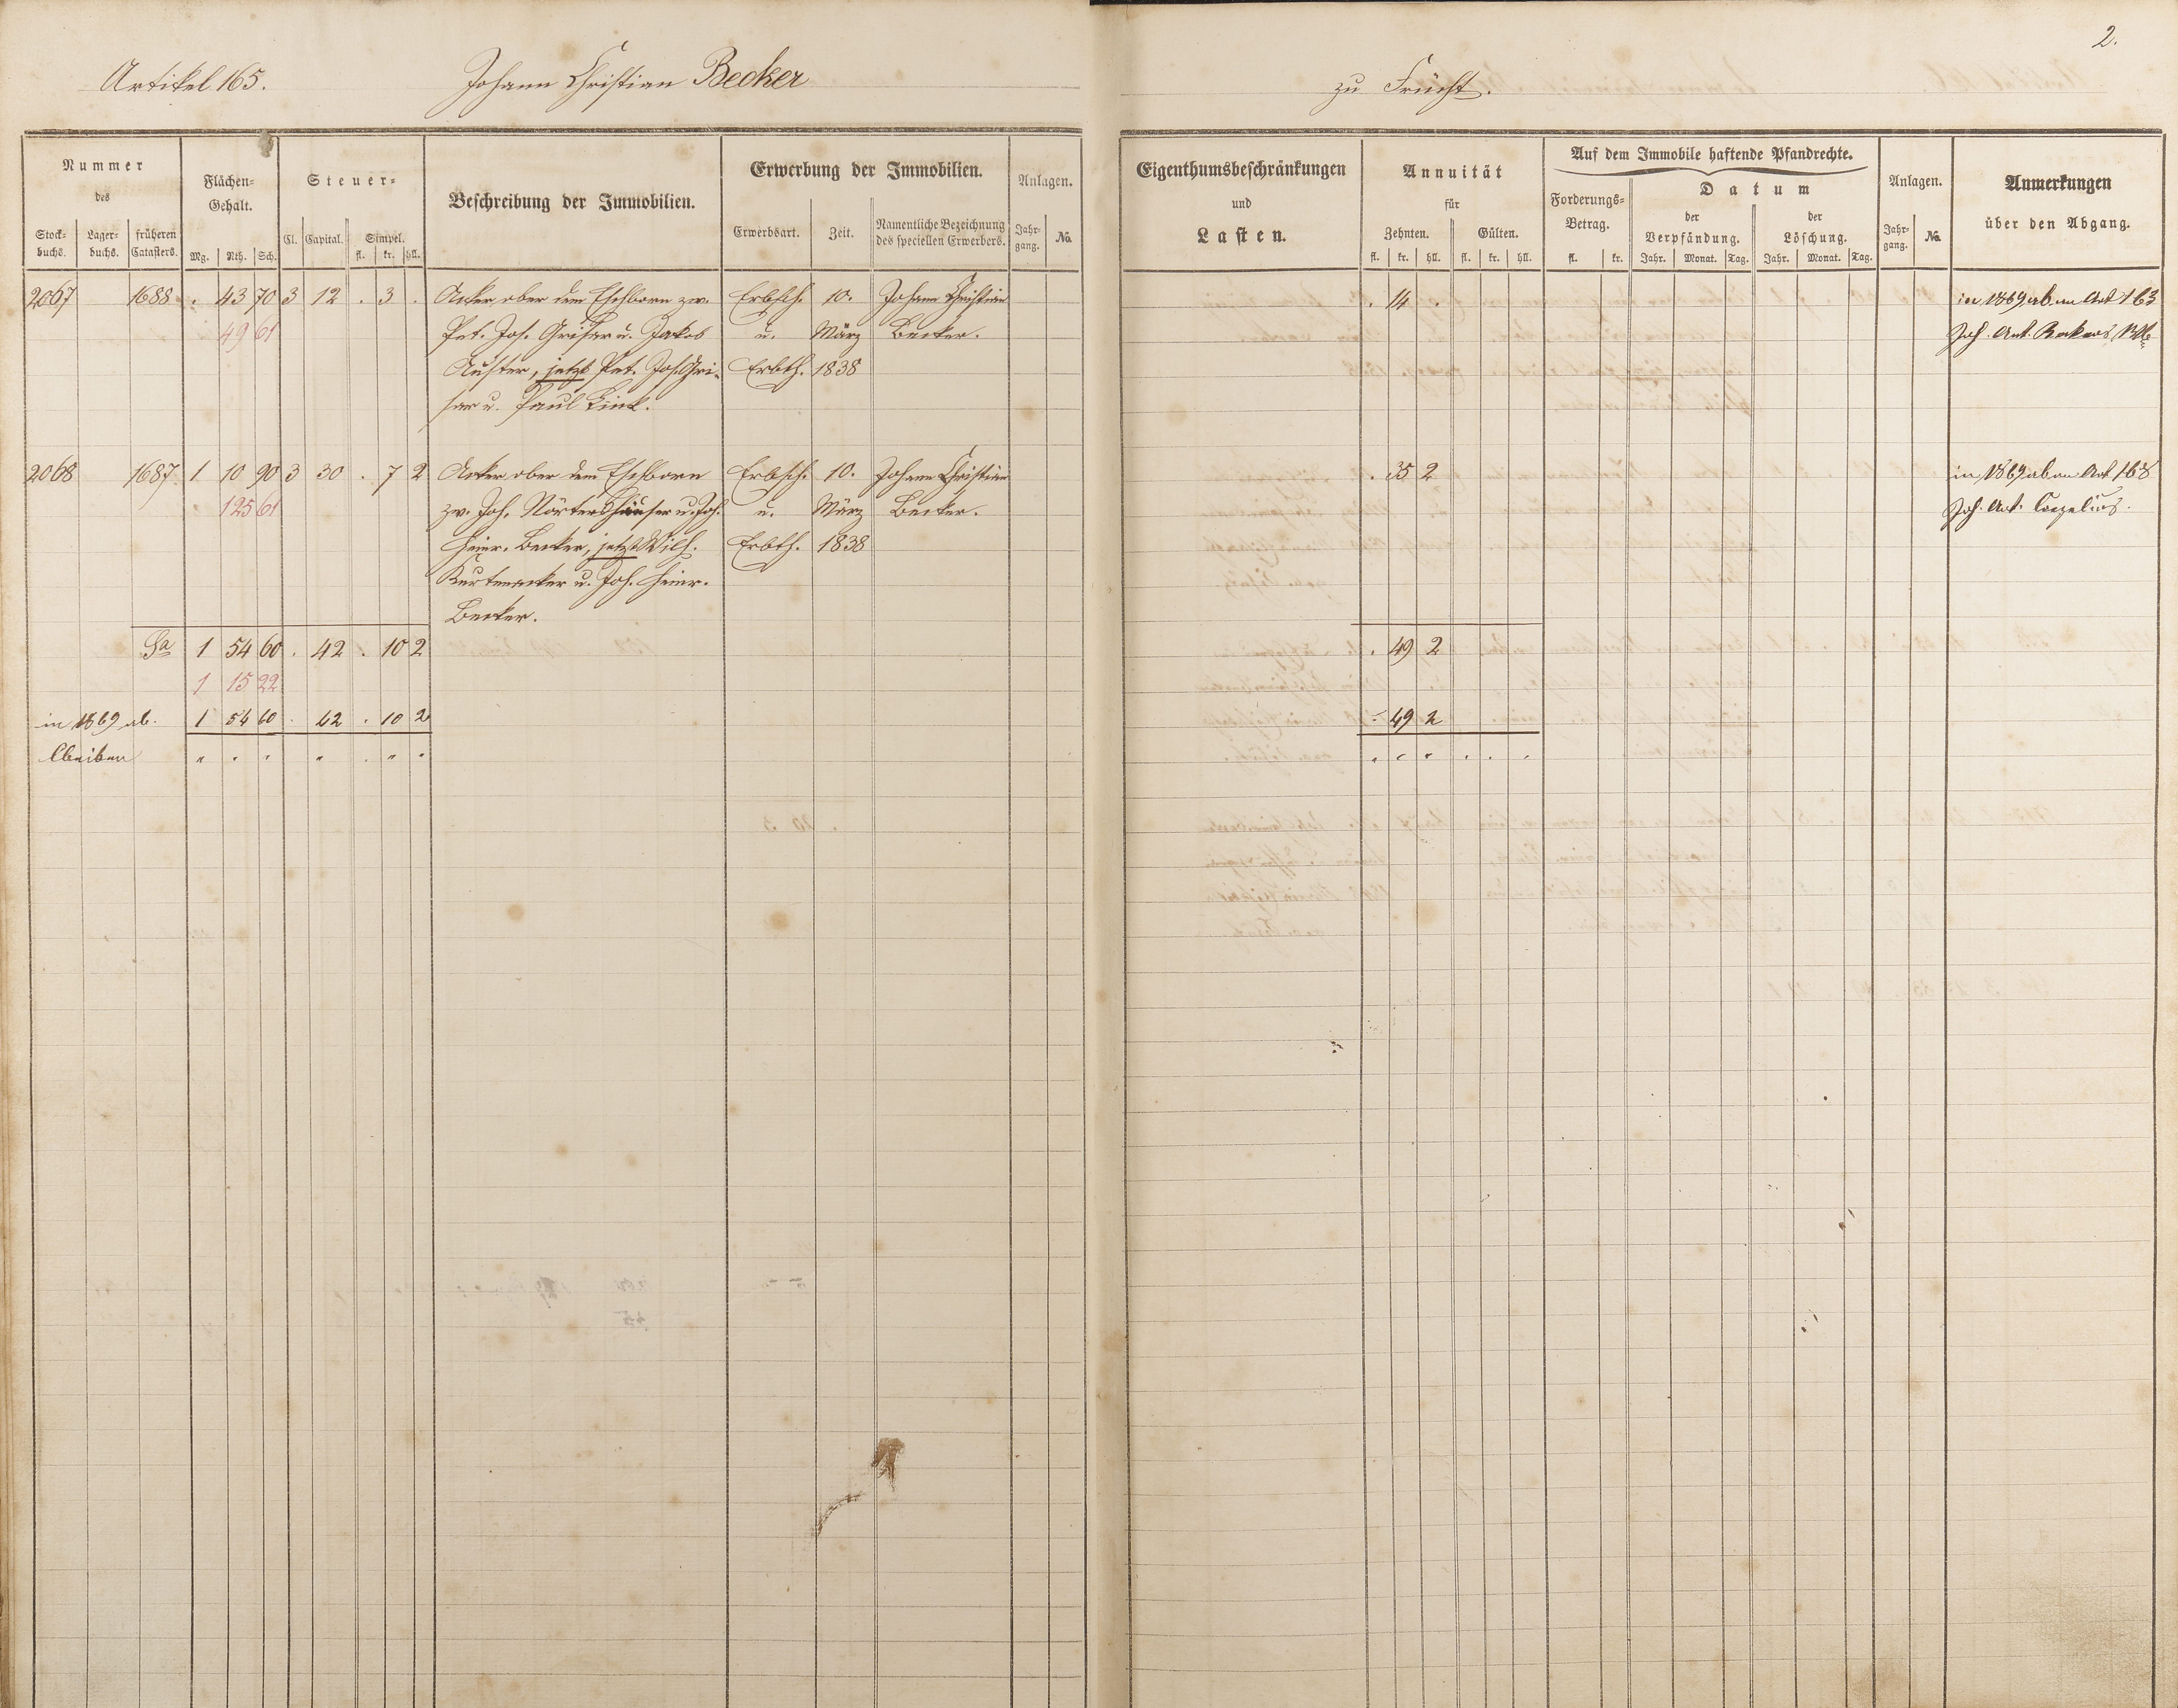 2.
Artikel 165. Johann Christian Becker zu Frücht.
Nummer des
Stock-buchs. Lager-buchs. früheren Catasters.
Flächen-Gehalt.
Mg. Rth. Sch.
Steuer-
Cl. Capital. Simpel.
fl. kr. hll.
Beschreibung der Immobilien.
Erwerbung der Immobilien.
Erwerbsart. Zeit. Namentliche Bezeichnung des speciellen Erwerbers.
Anlagen.
Jahr-gang. No.
Eigenthumsbeschränkungen
und
Lasten.
Annuität
für
Zehnten. Gülten.
fl. kr. hll. fl. kr. hll.
Auf dem Immobile haftende Pfandrechte.
Forderungs-Betrag.
fl. kr.
Datum
der Verpfändung. der Löschung.
Jahr. Monat. Tag. Jahr. Monat. Tag.
Anlagen.
Jahr-gang. No.
Anmerkungen
über den Abgang.
2067 1688 . 43 70 3 12 . 3 . Acker ober dem Eschborn zw. Erbsch. 10. Johann Christian . 14 . in 1869 ab an Art 163
49 61 Pet. Jos. Grisar u. Jakob u. März Becker. Joh. Ant. Beckers
Auster, jetzt Pet. Jos. Gri- Erbth. 1838
sar u. Paul Linck.
2068 1687. 1 10 90 3 30 . 7 2 Acker ober dem Eschborn Erbsch. 10. Johann Christian . 35 2 in 1869 ab an Art 168
125 61 zw. Joh. Nörtershäuser u. Joh. u. März Becker. Joh. Ant.
Heinr. Becker, jetzt Wilh. Erbth. 1838
Kurtenacker u. Joh. Heinr.
Becker.
Sa 1 54 60 . 42 . 10 2 . 49 2
1 15 22
in 1869 ab. 1 54 60 . 42 . 10 2 . 49 2
bleiben " " " " . " " " " " . . .